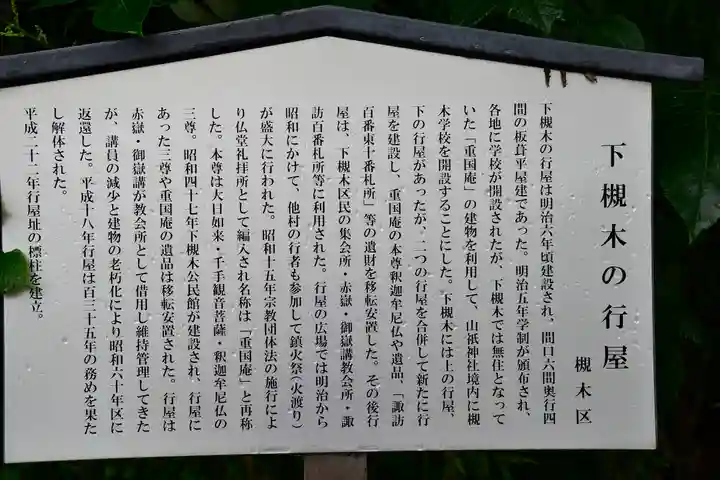 下槻木の行屋
槻木区
下槻木の行屋は明治六年頃建設され、間口六間奥行四
間の板葺平屋建であった。明治五年学制が頒布され、
各地に学校が開設されたが、下槻木では無住となって
いた「重国庵」の建物を利用して、山祇神社境内に槻
木学校を開設することにした。下槻木には上の行屋、
下の行屋があったが、二つの行屋を合併して新たに行
屋を建設し、重国庵の本尊釈迦牟尼仏や遺品、「諏訪
百番東十番札所」等の遺財を移転安置した。その後行
屋は、下槻木区民の集会所・赤嶽・御嶽講教会所・諏
訪百番札所等に利用された。行屋の広場では明治から
昭和にかけて、他村の行者も参加して鎮火祭（火渡り）
が盛大に行われた。昭和十五年宗教団体法の施行によ
り仏堂礼拝所として編入され名称は「重国庵」と再称
した。本尊は大日如来・千手観音菩薩・釈迦牟尼仏の
三尊。昭和四十七年下槻木公民館が建設され、行屋に
あった三尊や重国庵の遺品は移転安置された。行屋は
赤嶽・御嶽講が教会所として借用し維持管理してきた
が、講員の減少と建物の老朽化により昭和六十年区に
返還した。平成十八年行屋は百三十五年の務めを果た
し解体された。
平成二十二年行屋址の標柱を建立。